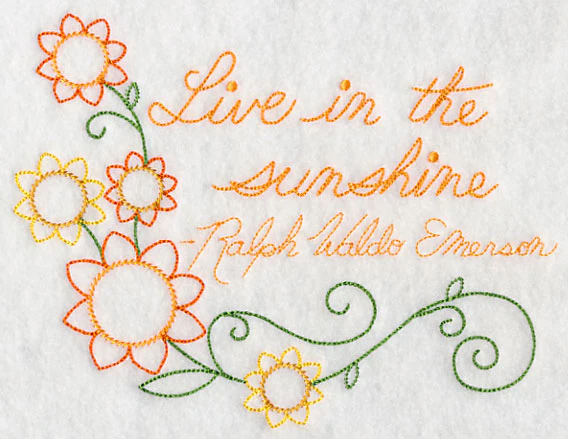 Live in the
sunshine
-Ralph Waldo Emerson